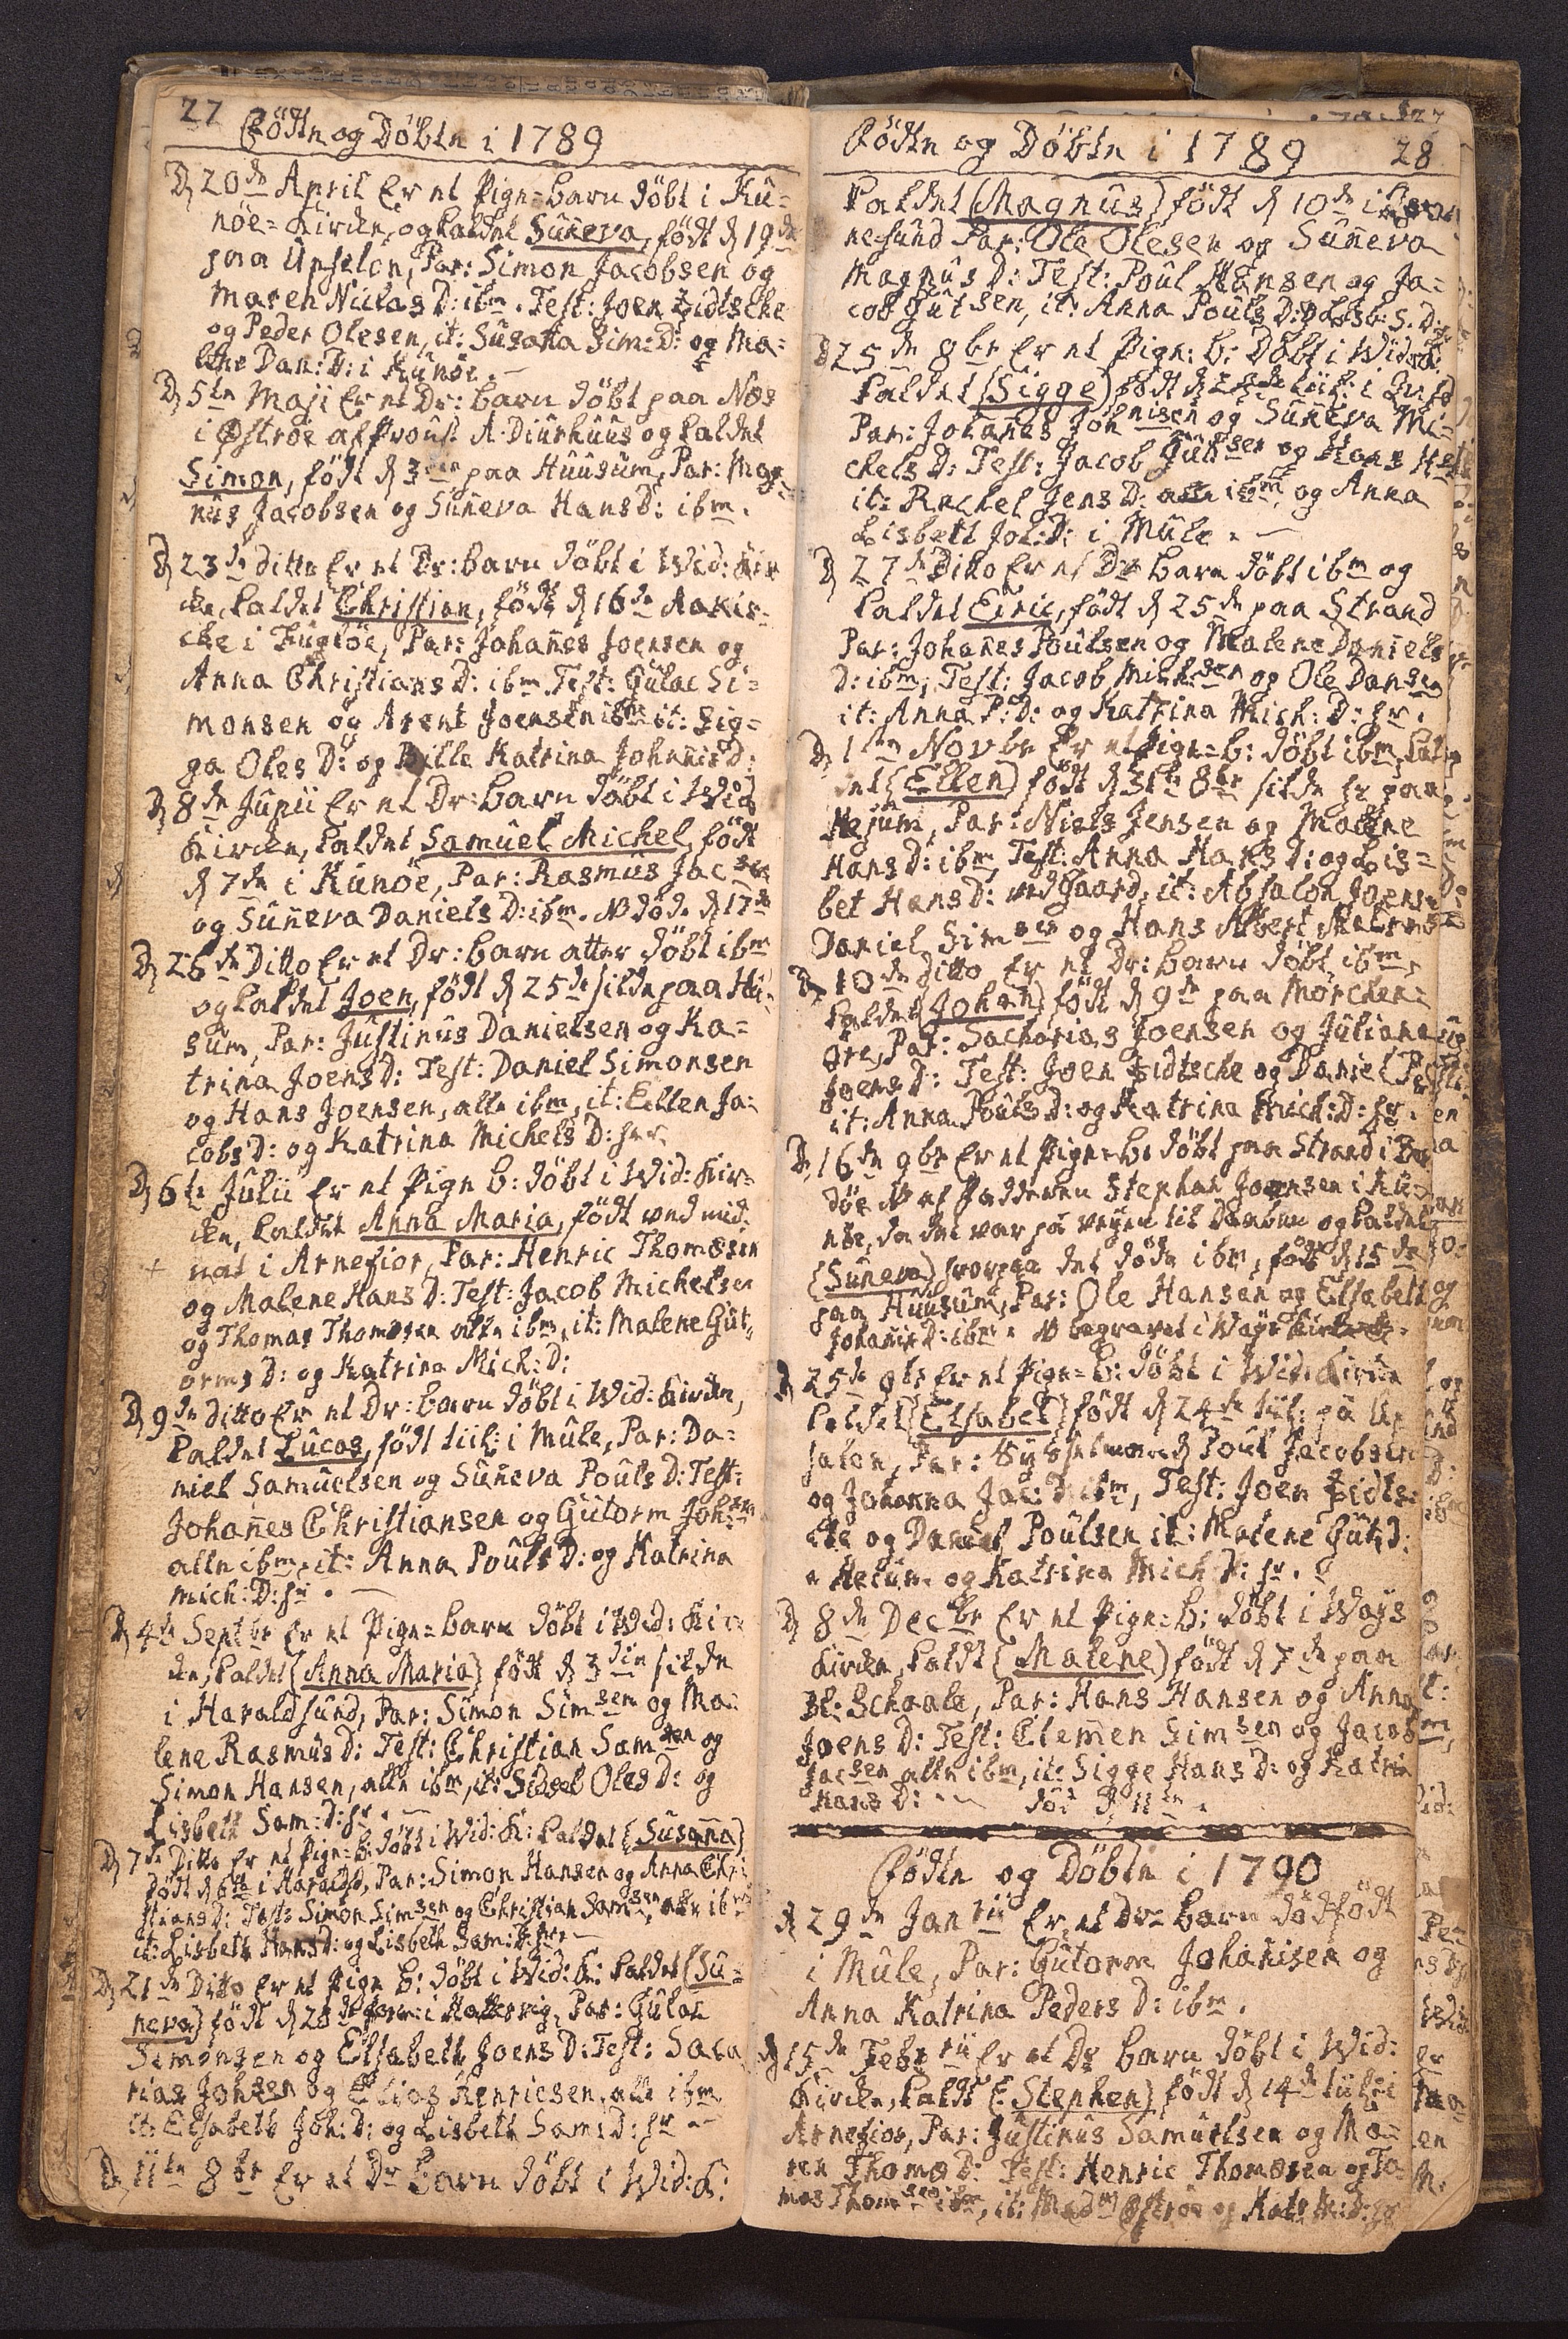 27
Födte og Döbte i 1789
D 20de April er et Pige=barn döbt i Ku=
nöe=Kirche, og kaldet Suñeva, födt d 19de
paa Upselon, Par: Simon Jacobsen og
Maren Niclas D: ibm. Test: Joen Zidtsche
og Peder Olesen, it: Susaña Sim: D: og Ma=
lene Dan: D: i Kunöe.
D 5te Maji er et Dr: barn döbt paa Næs
i Öströe af Proust A: Diurhuus og kaldet
Simon, födt d 3die paa Huusum, Par: Mag=
nus Jacobsen og Suñeva Hans D: ibm.
D 23de ditto er et Dr: barn döbt i Wid: Kir
che, kaldet Christian, födt d 16de
i Fuglöe, Par: Johañes Joensen og
Anna Christians D: ibm Test: Gulac Si=
monsen og Arent Joensen ibm it: Sig=
ga Oles D: og Bille Katrina Johañis D:
D 8de Junii er et Dr: barn döbt i Wid
Kirche, kaldet Samuel Michel, födt
d 7de i Kunöe, Par: Rasmus Jacsen
og Suñeva Daniels D: ibm. NB döde d 17de
D 26de Ditto er et Dr: barn atter döbt ibm
og kaldet Joen, födt d 25de silde paa Hu=
sum, Par: Justinus Danielsen og Ka=
trina Joens D: Test: Daniel Simonsen
og Hans Joensen, alle ibm, it: Ellen Ja=
cobs D: og Katrina Michels D: her.
D 6te Julii er et Pige b: döbt i Wid: Kir=
che, kaldet Anna Maria, födt ved mid=
nat i Arnefior, Par: Henric Thomæsen
og Malene Hans D: Test: Jacob Michelsen
og Thomas Thomæsen alle ibm, it: Malene Gut=
orms D: og Katrina Mich: D:
D 9de ditto er et Dr: barn döbt i Wid: Kirche,
kaldet Lucas, födt tiil: i Mule, Par: Da=
niel Samuelsen og Suñeva Pouls D: Test:
Johañes Christiansen og Gutorm Joh:sen
alle ibm, it: Anna Pouls D: og Katrina
Mich: D: hr.
D 4de Septbr er et Pige=barn döbt i Wid: Kir=
che, kaldet (Anna Maria) födt d 3die silde
i Haraldsund, Par: Simon Simsen og Ma=
lene Rasmus D: Test: Christian Samsen og
Simon Hansen, alle ibm, it: Sidsel Oles D: og
Lisbeth Sam: D: hr.
D 7de Ditto er et Pige=b: döbt i Wid: K: kaldet (Susaña)
födt d 6te i Haraldsd, Par: Simon Hansen og Anna Chri
stians D: Test: Simon Simsen og Christian Samsen, alle ibm
it: Lisbeth Hans D: og Lisbeth Sam: D: hr
D 21de Ditto er et Pige b: döbt i Wid: K: kaldet (Su=
neva) födt d 20de i Hattervig, Par: Gulac
Simonsen og Elsabeth Joens D: Test: Saca
rias Johsen og Elias Henricsen, alle ibm
it: Elsabeth Joh: D: og Lisbeth Sam: D: hr
D 11te 8br er et Dr barn döbt i Wid: K:
Födte og Döbte i 1789 28
kaldet (Magnus) födt d 10de i
nesund Par: Ole Olesen og Suñeva
Magnus D: Test: Poul Hansen og Ja=
cob Gutsen, it: Anna Pouls D: S: D:
D 25de 8br er et Pige: b: Döbt i Wid: K:
kaldet (Sigge) födt d tiil: i
Par: Johañes Johnisen og Suñeva Mi=
chels D: Test: Jacob Gutsen og Hans
it: Rachel Jens D: alle ibm og Anna
Lisbeth Joh: D: i Mule.
D 27de Ditto er et Dr barn döbt ibm og
kaldet Eiric, födt d 25de paa Strand
Par: Johañes Poulsen og Malene Daniels
D: ibm, Test: Jacob Michsen og Ole Dansen
it: Anna P: D: og Katrina Mich: D: hr.
D 1ste Novbr er et Pige=b: döbt ibm, kal=
det (Ellen) födt d 31te 8br silde hr paa
Hejum, Par: Niels Jensen og Malene
Hans D: ibm, Test: Anna Hans D: og Lis=
bet Hans D: ved Gaard, it: Absalon Joens
Daniel Simsen og Hans Albert
D 10de ditto er et Dr: barn döbt ibm,
kaldet (Johan) födt d 9de paa Morchen=
öre, Par: Sacharias Joensen og Juliana
Joens D: Test: Joen Zidtsche og Daniel
it: Anna Pouls D: og Katrina Mich: D: hr.
D 16de 9br er et Pige=b: döbt paa Strand i Bor
döe NB af Stephan Joensen i Ku=
nöe, da det var på veyen til Daaben og kaldet
(Suneva) hvorpaa det döde ibm, födt d 15de
paa Huusum, Par: Ole Hansen og Elsabeth
Johañis D: ibm. NB begravet i Wags Kirke
D 25de 9br er et Pige=b: döbt i Wid: Kirche
kaldet (Elsabet) födt d 24de tiil: på Up
salon, Par: Sysselmand Poul Jacobsen
og Johanna Jac: D: ibm, Test: Joen Zidts=
che og Daniel Poulsen it: Malene Guts D:
Hejum og Katrina Mich: D: hr.
D 8de Decbr er et Pige=b: döbt i Wags
Kirche, kaldt (Malene) födt d 7de paa
Schaale, Par: Hans Hansen og Anna
Joens D: Test: Clemen Simsen og Jacob
Jacsen alle ibm, it: Sigge Hans D: og Katrin
Hans D: död d 11te.
Födte og Döbte i 1790
D 29de Janrii er et Dr= barn dödfödt
i Mule, Par: Gutorm Johañisen og
Anna Katrina Peders D: ibm.
D 15de Febrrii er et Dr barn döbt i Wid:
Kirche, kaldt (Stephen) födt d 14de tiil: i
Arnefior, Par: Justinus Samuelsen og Ma=
ren Thomæ D: Test: Henric Thomæsen og Tho=
mas Thomsen ibm, it: Öströe og Katr: M: D: hr